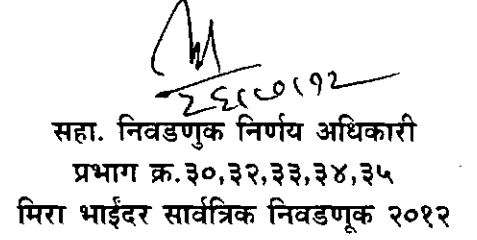 सहा. निवडणुक निर्णय अधिकारी
प्रभाग क्र.३०,३२,३३,३४,३५
मिरा भाईंदर सार्वत्रिक निवडणूक २०१२